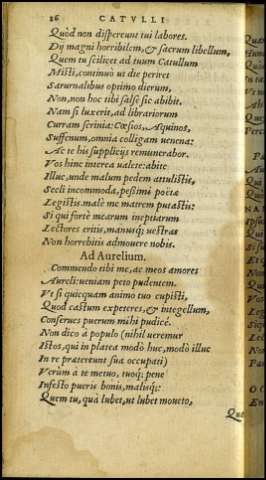 26 CATVLLI
Quòd non dispereunt tui labores.
Dij magni horribilem, & sacrum libellum,
Quem tu scilicet ad tuum Catullum
Misti, continuò ut die periret
Saturnalibus optimo dierum,
Non, non hoc tibi salse sic abibit.
Nam si luxerit, ad librariorum
Curram scrinia: Cæsios, Aquinos,
Suffenum, omnia colligam uenena:
Ac te his supplicijs remunerabor.
Vos hinc interea ualete: abite
Illuc, unde malum pedem attulistis,
Secli incommoda, peßimi poëtæ
Legistis. malè me matrem putastis:
Si qui fortè mearum ineptiarum
Lectores eritis, manusq; uestras
Non horrebitis admouere nobis.
Ad Aurelium.
Commendo tibi me, ac meos amores
Aureli: ueniam peto pudentem.
Vt si quicquam animo tuo cupisti,
Quod castum expeteres, & integellum,
Conserues puerum mihi pudicè.
Non dico à populo (nihil ueremur
Istos, qui in platea modò huc, modò illuc
In re prætereunt sua occupati)
Verùm à te metuo, tuoq; pene
Infesto pueris bonis, malisq;:
Quem tu, quà lubet, ut lubet moueto,